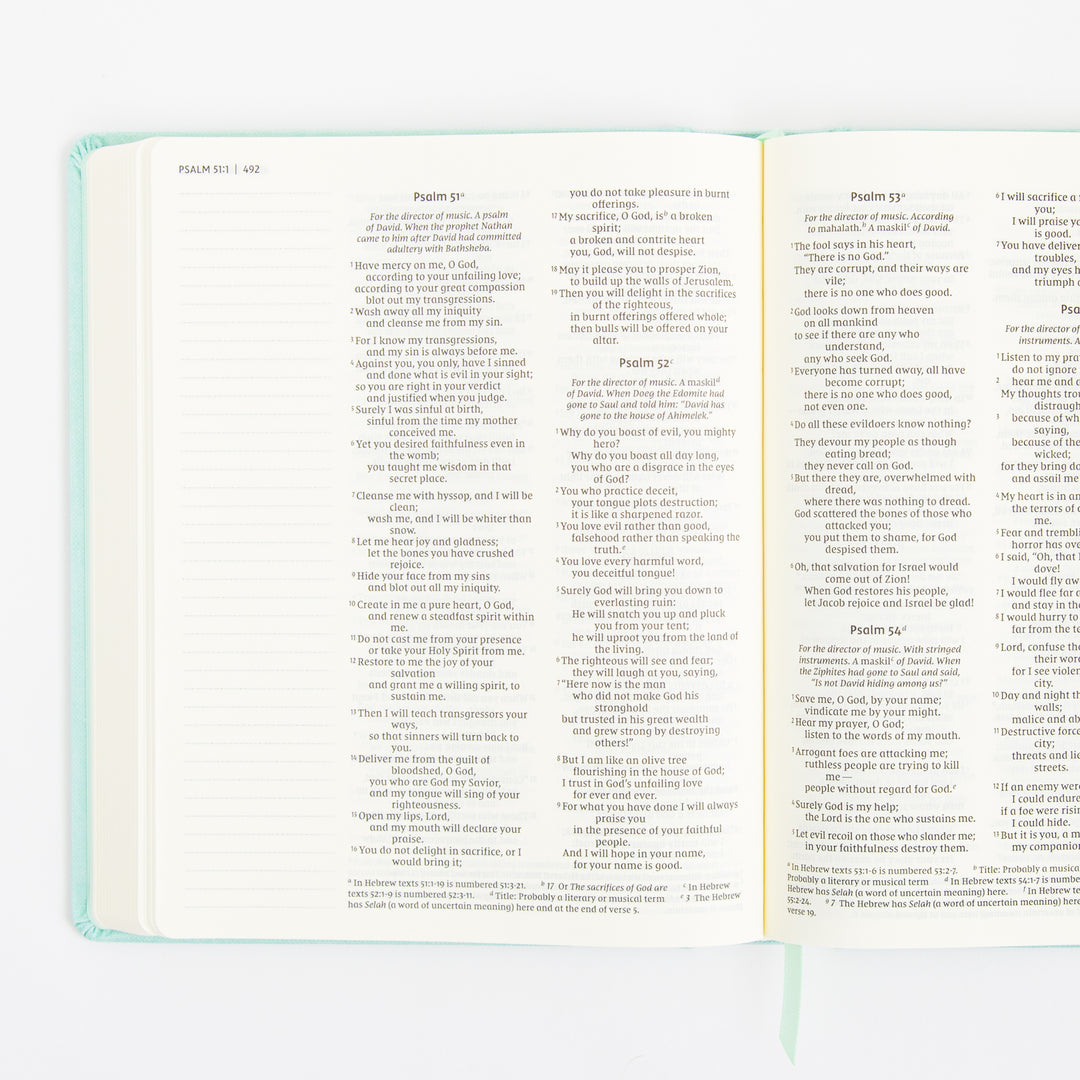 PSALM 51:1 | 492
Psalm 51a
For the director of music. A psalm
of David. When the prophet Nathan
came to him after David had committed
adultery with Bathsheba.
1 Have mercy on me, O God,
according to your unfailing love;
according to your great compassion
blot out my transgressions.
2 Wash away all my iniquity
and cleanse me from my sin.
3 For I know my transgressions,
and my sin is always before me.
4 Against you, you only, have I sinned
and done what is evil in your sight;
so you are right in your verdict
and justified when you judge.
5 Surely I was sinful at birth,
sinful from the time my mother
conceived me.
6 Yet you desired faithfulness even in
the womb;
you taught me wisdom in that
secret place.
7 Cleanse me with hyssop, and I will be
clean;
wash me, and I will be whiter than
snow.
8 Let me hear joy and gladness;
let the bones you have crushed
rejoice.
9 Hide your face from my sins
and blot out all my iniquity.
10 Create in me a pure heart, O God,
and renew a steadfast spirit within
me.
11 Do not cast me from your presence
or take your Holy Spirit from me.
12 Restore to me the joy of your
salvation
and grant me a willing spirit, to
sustain me.
13 Then I will teach transgressors your
ways,
so that sinners will turn back to
you.
14 Deliver me from the guilt of
bloodshed, O God,
you who are God my Savior,
and my tongue will sing of your
righteousness.
15 Open my lips, Lord,
and my mouth will declare your
praise.
16 You do not delight in sacrifice, or I
would bring it;
you do not take pleasure in burnt
offerings.
17 My sacrifice, O God, is b a broken
spirit;
a broken and contrite heart
you, God, will not despise.
18 May it please you to prosper Zion,
to build up the walls of Jerusalem.
19 Then you will delight in the sacrifices
of the righteous,
in burnt offerings offered whole;
then bulls will be offered on your
altar.
Psalm 52c
For the director of music. A maskil d
of David. When Doeg the Edomite had
gone to Saul and told him: “David has
gone to the house of Ahimelek.”
1 Why do you boast of evil, you mighty
hero?
Why do you boast all day long,
you who are a disgrace in the eyes
of God?
2 You who practice deceit,
your tongue plots destruction;
it is like a sharpened razor.
3 You love evil rather than good,
falsehood rather than speaking the
truth.e
4 You love every harmful word,
you deceitful tongue!
5 Surely God will bring you down to
everlasting ruin:
He will snatch you up and pluck
you from your tent;
he will uproot you from the land of
the living.
6 The righteous will see and fear;
they will laugh at you, saying,
7 “Here now is the man
who did not make God his
stronghold
but trusted in his great wealth
and grew strong by destroying
others!”
8 But I am like an olive tree
flourishing in the house of God;
I trust in God’s unfailing love
for ever and ever.
9 For what you have done I will always
praise you
in the presence of your faithful
people.
And I will hope in your name,
for your name is good.
a In Hebrew texts 51:1-19 is numbered 51:3-21. b 17 Or The sacrifices of God are c In Hebrew
texts 52:1-9 is numbered 52:3-11. d Title: Probably a literary or musical term e 3 The Hebrew
has Selah (a word of uncertain meaning) here and at the end of verse 5.
Psalm 53a
For the director of music. According
to mahalath.b A maskil c of David.
1 The fool says in his heart,
“There is no God.”
They are corrupt, and their ways are
vile;
there is no one who does good.
2 God looks down from heaven
on all mankind
to see if there are any who
understand,
any who seek God.
3 Everyone has turned away, all have
become corrupt;
there is no one who does good,
not even one.
4 Do all these evildoers know nothing?
They devour my people as though
eating bread;
they never call on God.
5 But there they are, overwhelmed with
dread,
where there was nothing to dread.
God scattered the bones of those who
attacked you;
you put them to shame, for God
despised them.
6 Oh, that salvation for Israel would
come out of Zion!
When God restores his people,
let Jacob rejoice and Israel be glad!
Psalm 54d
For the director of music. With stringed
instruments. A maskil c of David. When
the Ziphites had gone to Saul and said,
“Is not David hiding among us?”
1 Save me, O God, by your name;
vindicate me by your might.
2 Hear my prayer, O God;
listen to the words of my mouth.
3 Arrogant foes are attacking me;
ruthless people are trying to kill
me—
people without regard for God.e
4 Surely God is my help;
the Lord is the one who sustains me.
5 Let evil recoil on those who slander me;
in your faithfulness destroy them.
6 I will sacrifice a
you;
I will praise
is good.
7 You have
troubles,
and my eyes
triumph
For the director of
instruments.
1 Listen to my
do not ignore
2 hear me and
My thoughts
3 because of
saying,
because of the
wicked;
for they bring
and assail me
4 My heart is in
the terrors of
me.
5 Fear and
horror has
6 I said, “Oh, that
dove!
I would fly
7 I would flee far
and stay in the
8 I would hurry to
far from the
9 Lord, confuse
their
for I see
city.
10 Day and night
walls;
malice and
11 Destructive
city;
threats and
streets.
12 If an enemy
I could endure
if a foe were
I could hide.
13 But it is you, a
my
a In Hebrew texts 53:1-6 is numbered 53:2-7. b Title: Probably a
Probably a literary or musical term d In Hebrew texts 54:1-7 is
Hebrew has Selah (a word of uncertain meaning) here. f In Hebrew
55:2-24. g 7 The Hebrew has Selah (a word of uncertain meaning)
verse 19.